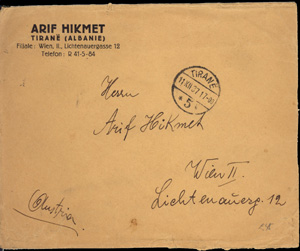 ARIF HIKMET
TIRANË (ALBANIE)
Filiale: Wien, II., Lichtenauergasse 12
Telefon: R 41-5-84
TIRANË
11.XII.37.17-00
* 5 *
Herrn
Arif Hikmet
Wien II.
Lichtenauerg. 12
(Austria)